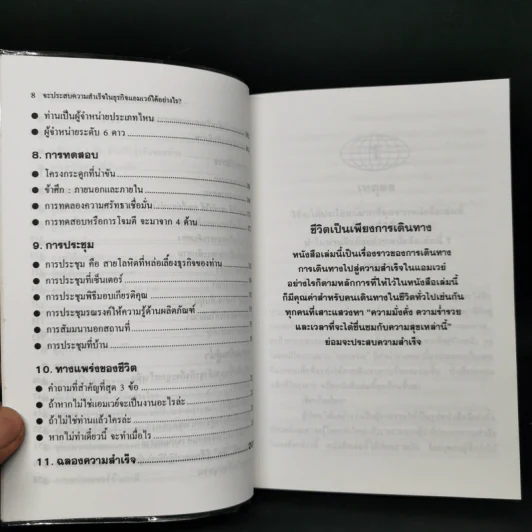 8 จะประสบความสำเร็จในธุรกิจแอมเวย์ได้อย่างไร?
● ท่านเป็นผู้จำหน่ายประเภทไหน
● ผู้จำหน่ายระดับ 6 ดาว
8. การทดสอบ
● โครงกระดูกที่น่าขัน
● ข้าศึก : ภายนอกและภายใน
● การทดลองความศรัทธาเชื่อมั่น
● การทดสอบหรือการโจมตี จะมาจาก 4 ด้าน
9. การประชุม
● การประชุม คือ สายโลหิตที่หล่อเลี้ยงธุรกิจของท่าน
● การประชุมที่เซ็นเตอร์
● การประชุมพิธีมอบเกียรติคุณ
● การประชุมรณรงค์ให้ความรู้ด้านผลิตภัณฑ์
● การสัมมนานอกสถานที่
● การประชุมที่บ้าน
10. ทางแพร่งของชีวิต
● คำถามที่สำคัญที่สุด 3 ข้อ
● ถ้าหากไม่ใช่แอมเวย์จะเป็นงานอะไรล่ะ
● ถ้าไม่ใช่ท่านแล้วใครล่ะ
● หากไม่ทำเดี๋ยวนี้ จะทำเมื่อไร
11. ฉลองความสำเร็จ
ชีวิตเป็นเพียงการเดินทาง
หนังสือเล่มนี้เป็นเรื่องราวของการเดินทาง
การเดินทางไปสู่ความสำเร็จในแอมเวย์
อย่างไรก็ตามหลักการที่ให้ไว้ในหนังสือเล่มนี้
ก็มีคุณค่าสำหรับคนเดินทางในชีวิตทั่วไปเช่นกัน
ทุกคนที่เสาะแสวงหา "ความมั่งคั่ง ความร่ำรวย
และเวลาที่จะได้ชื่นชมกับความสุขเหล่านี้"
ย่อมจะประสบความสำเร็จ